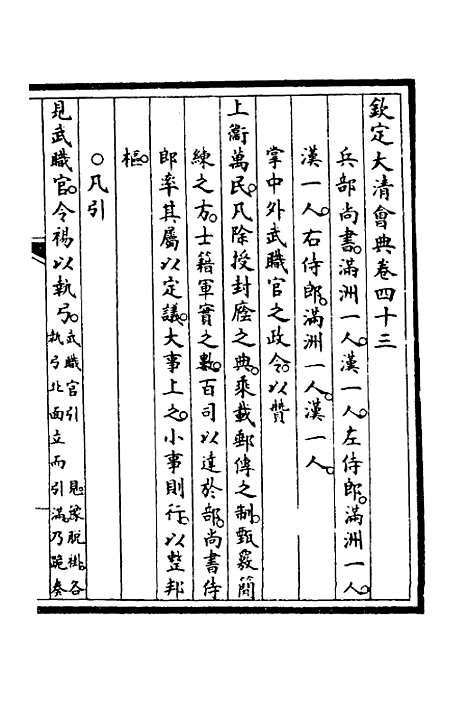 欽定大清會典卷四十三
兵部尚書。滿洲一人。漢一人。左侍郎。滿洲一人。
漢一人。右侍郎。滿洲一人。漢一人。
掌中外武職官之政令。以贊
上衛萬民。凡除授封廕之典。乘載郵傳之制。甄覈簡
練之方。士籍軍實之數。百司以達於部。尚書侍
郎率其屬以定議。大事上之。小事則行。以整邦
樞。
○凡引
見武職官。令裼以執弓。武職官引 見。豫脫褂。各
執弓北面立而引滿。乃跪奏